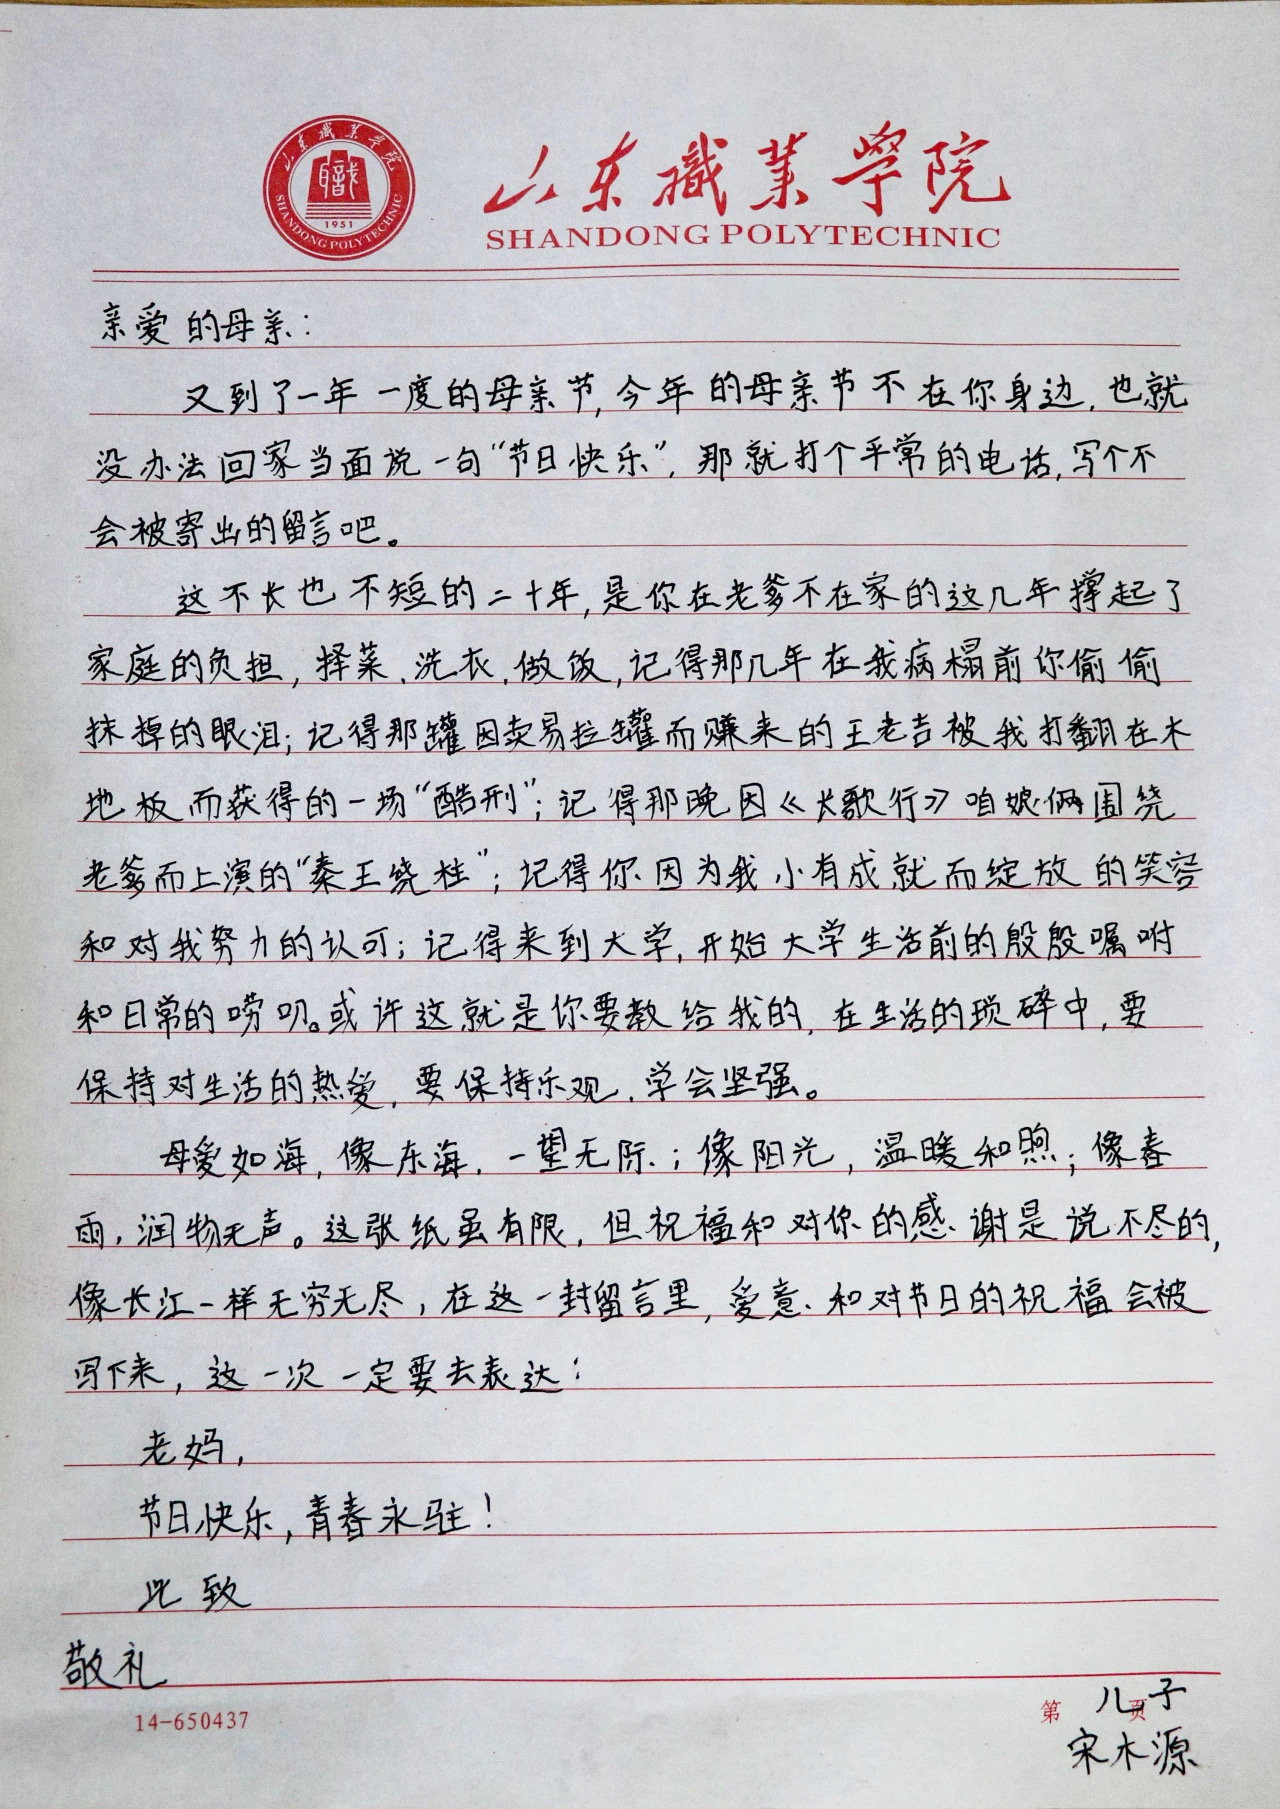 山东职业学院
職
1951
SHANDONG POLYTECHNIC
山东職業學院
SHANDONG POLYTECHNIC
亲爱的母亲:
又到了一年一度的母亲节,今年的母亲节不在你身边,也就
没办法回家当面说一句“节日快乐”,那就打个平常的电话,写个不
会被寄出的留言吧。
这不长也不短的二十年,是你在老爹不在家的这几年撑起了
家庭的负担,择菜,洗衣,做饭,记得那几年在我病榻前你偷偷
抹掉的眼泪;记得那罐因卖易拉罐而赚来的王老吉被我打翻在木
地板而获得的一场“酷刑”;记得那晚因《长歌行》咱娘俩围绕
老爹而上演的“秦王绕柱”;记得你因为我小有成就而绽放的笑容
和对我努力的认可;记得来到大学,开始大学生活前的殷殷嘱咐
和日常的唠叨。或许这就是你要教给我的,在生活的琐碎中,要
保持对生活的热爱,要保持乐观,学会坚强。
母爱如海,像东海,一望无际;像阳光,温暖和煦;像春
雨,润物无声。这张纸虽有限,但祝福和对你的感谢是说不尽的,
像长江一样无穷无尽,在这一封留言里,爱意、和对节日的祝福会被
写下来,这一次一定要去表达:
老妈,
节日快乐,青春永驻!
此致
敬礼
14-650437
第 页
儿子
宋木源